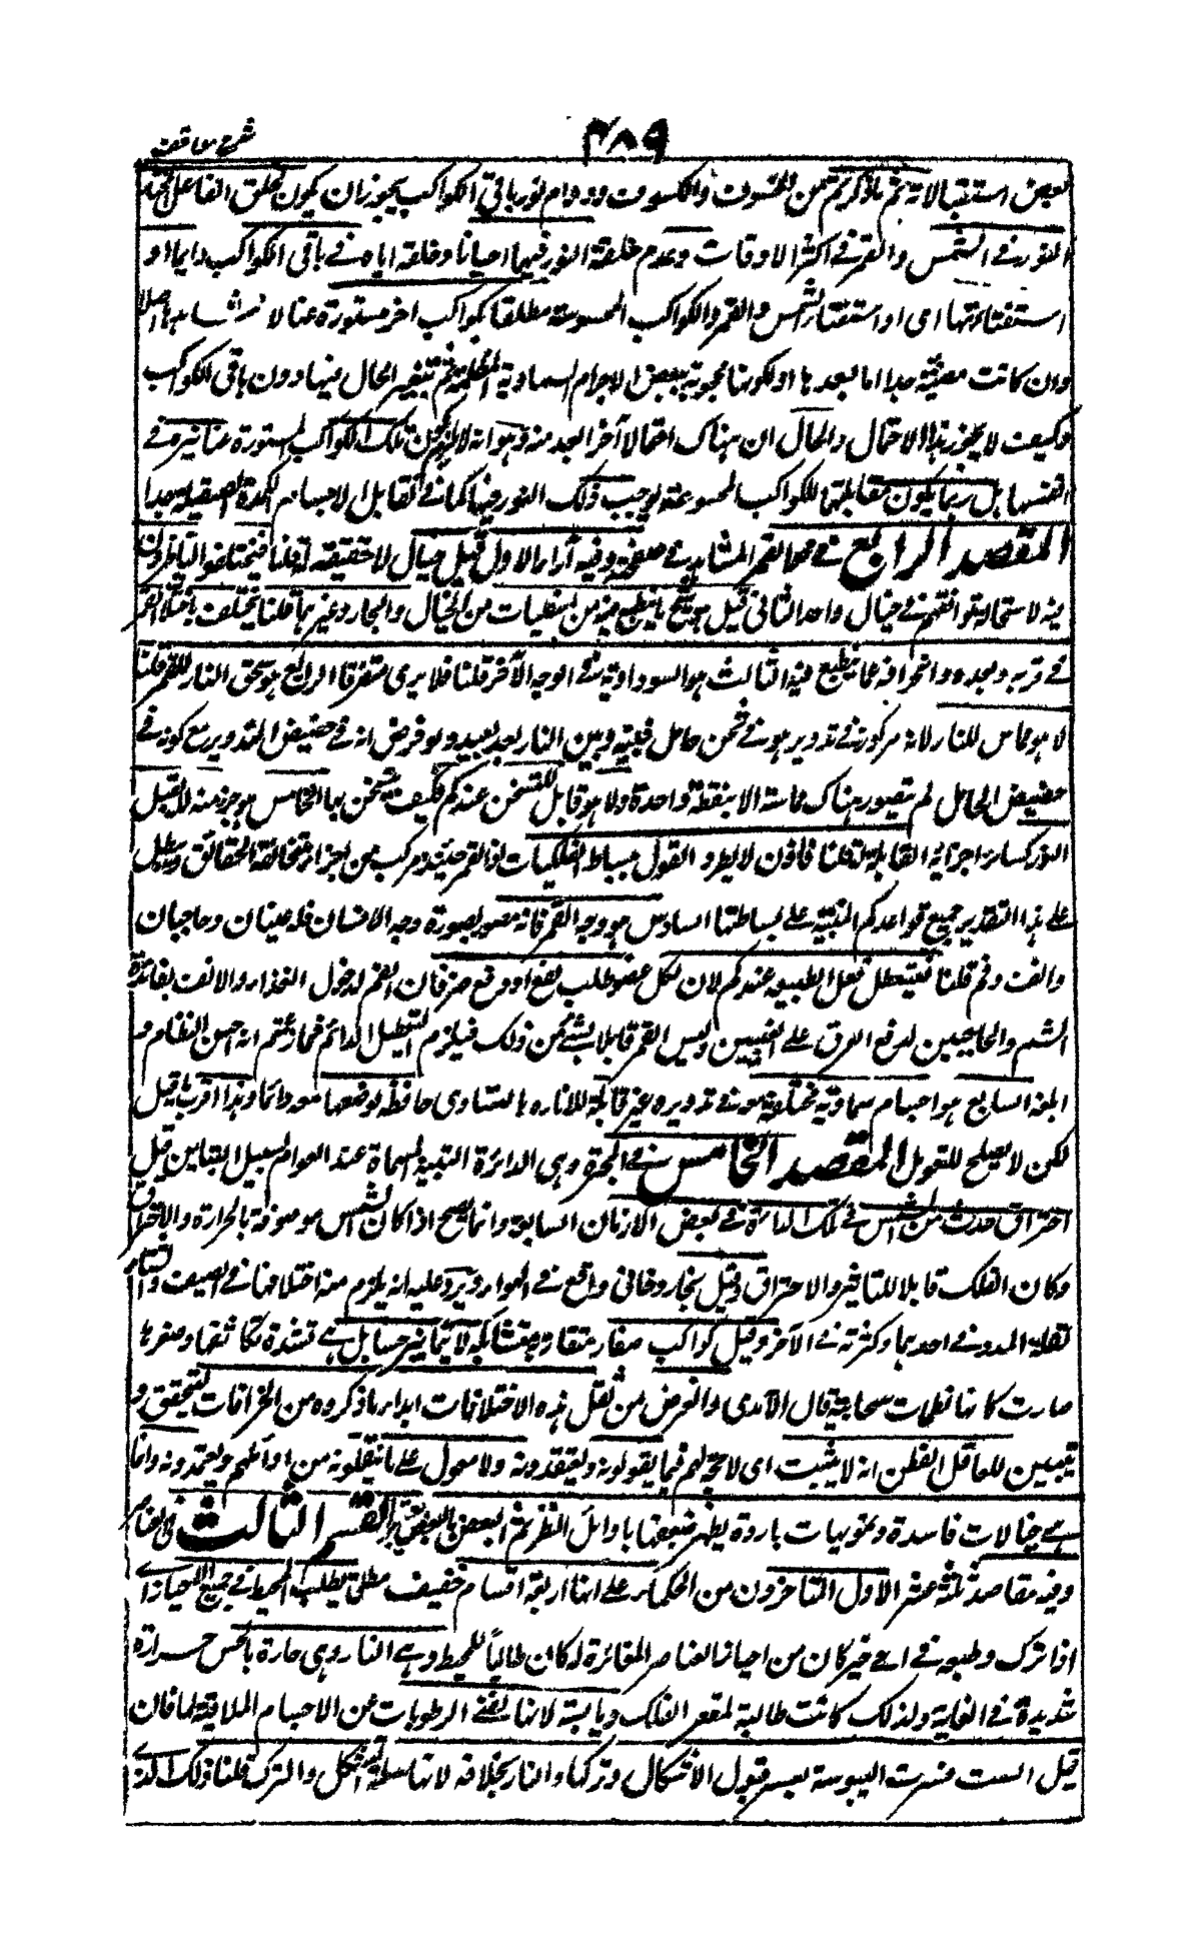 شرح مواقف
۴۸۹
بعض استقبالاته ثم ما ذكرتم من الخسوف والكسوف ودوام نور باقى الكواكب يجوز ان يكون لخلق الفاعل المختار
النور فے الشمس والقمر فے اكثر الاوقات وعدم خلقه النور فيها احيانا وخلقه اياه فے باقى الكواكب دايما او
استفنائتها اى او استفناء الشمس والقمر والكواكب المحسوسة مطلقا بكواكب اخر مستورة عنا لا نشاهدها اصلا
وان كانت مضيئة جدا اما لبعدها او لكونها محجوبة ببعض الاجرام السماوية المظلمة ثم يتغير الحال فيها دون باقى الكواكب
وكيف لا يجوز هذا الاحتمال والحال ان هناك احتمالا آخر ابعد منه وهو انه لا يلزم كون تلك الكواكب المستورة عنا نيرة فے
انفسها بل ربما يكون مقابلتها للكواكب المحسوسة توجب ذلك النور فيها كما فے تقابل الاجسام الكمدة الصقيلة جدا
المقصد الرابع فے محو القمر المشاهد فے صفحته وفيه آراء الاول قيل خيال لا حقيقة له قلنا فيختلف الناظرون
فيه لاستحالة توافقهم فے خيال واحد الثانى قيل هو شبح ما ينطبع فيه من السفليات من الجبال والبحار وغيرها قلنا فيختلف باختلاف القمر
فے قربه وبعده وانحرافه عما ينطبع فيه الثالث هو السواد فے الوجه الآخر قلنا فلا يرى متفرقا الرابع هو سحق النار للقمر قلنا
لا هو مماس للنار لانه مركوز فے تدوير هو فے ثخن حامل فبينه وبين النار بعد بعيد ولو فرض انه فے حضيض التدوير مع كونه فے
حضيض الحامل لم يتصور هناك مماسة الا بنقطة واحدة ولا هو قابل للتسخن عندكم فكيف يتسخن بها الخامس هو جزء منه لا يقبل
النور كسائر اجزائه القابلة له قلنا فاذن لا يطرد القول ببساطة الفلكيات اذ القمر حينئذ مركب من اجزاء متخالفة الحقائق ويبطل
على هذا التقدير جميع قواعدكم المبنية على بساطتها السادس هو وجه القمر فانه مصور بصورة وجه الانسان فله عينان وحاجبان
وانف وفم قلنا فيتعطل فعل الطبيعة عندكم لان لكل عضو طلب نفع او دفع ضر فان الفم لدخول الغذاء والانف لفائدة
الشم والحاجبين لدفع العرق على العينين وليس القمر قابلا لشئ من ذلك فيلزم التعطيل الدائم فما زعمتم انه احسن النظام و
ابلغه السابع هو اجسام سماوية مختلفة معه فے تدويره غير قابلة للانارة بالتساوى حافظة لوضعها معه دائما وهذا اقرب ما قيل
لكن لا يصلح للتعويل المقصد الخامس فے المجرة وهى الدائرة التبنية المسماة عند العوام بسبيل التبانين قيل
احتراق حدث من الشمس فے تلك الدائرة فے بعض الازمان السابقة وانما يصح اذا كان الشمس موصوفة بالحرارة والاحراق
وكان الفلك قابلا للتاثير والاحتراق وقيل بخار دخانى واقع فے الهواء ويرد عليه انه يلزم منه اختلافها فے الصيف والشتاء
لقلة المدد فے احدهما وكثرته فے الآخر وقيل كواكب صغار متقاربة متشابكة لا تتمايز حسا بل هے لشدة تكاثفها وصغرها
صارت كانها لطخات سحابية قال الآمدى والغرض من نقل هذه الاختلافات ابداء ما ذكروه من الخرافات لتحقيق و
تبيين للعاقل الفطن انه لا يثبت اى لا حجة لهم فيما يقولونه ويعتقدونه ولا معول على ما ينقلونه من اوائلهم ويعتمدونه وانما
هے خيالات فاسدة وتمويهات باردة يظهر ضعفها باوائل النظر ثم البعض بالبعض يعتبر القسم الثالث فى العناصر
وفيه مقاصد ثلثة عشر الاول المتاخرون من الحكماء على انها اربعة اقسام خفيف مطلق يطلب المحيط فے جميع الاحياز اے
اذا ترك وطبعه فے اے حيز كان من احياز العناصر المغائرة له كان طالبا للمحيط وهے النار وهى حارة بالحس حرارة
شديدة فے الغاية ولذلك كانت طالبة لمقعر الفلك ويابسة لانها تفنے الرطوبات عن الاجسام الملاقية لها فان
قيل الست فسرت اليبوسة بعسر قبول الاشكال وتركها والنار بخلافه لانها سهلة التشكل والترك قلنا ذلك الذے